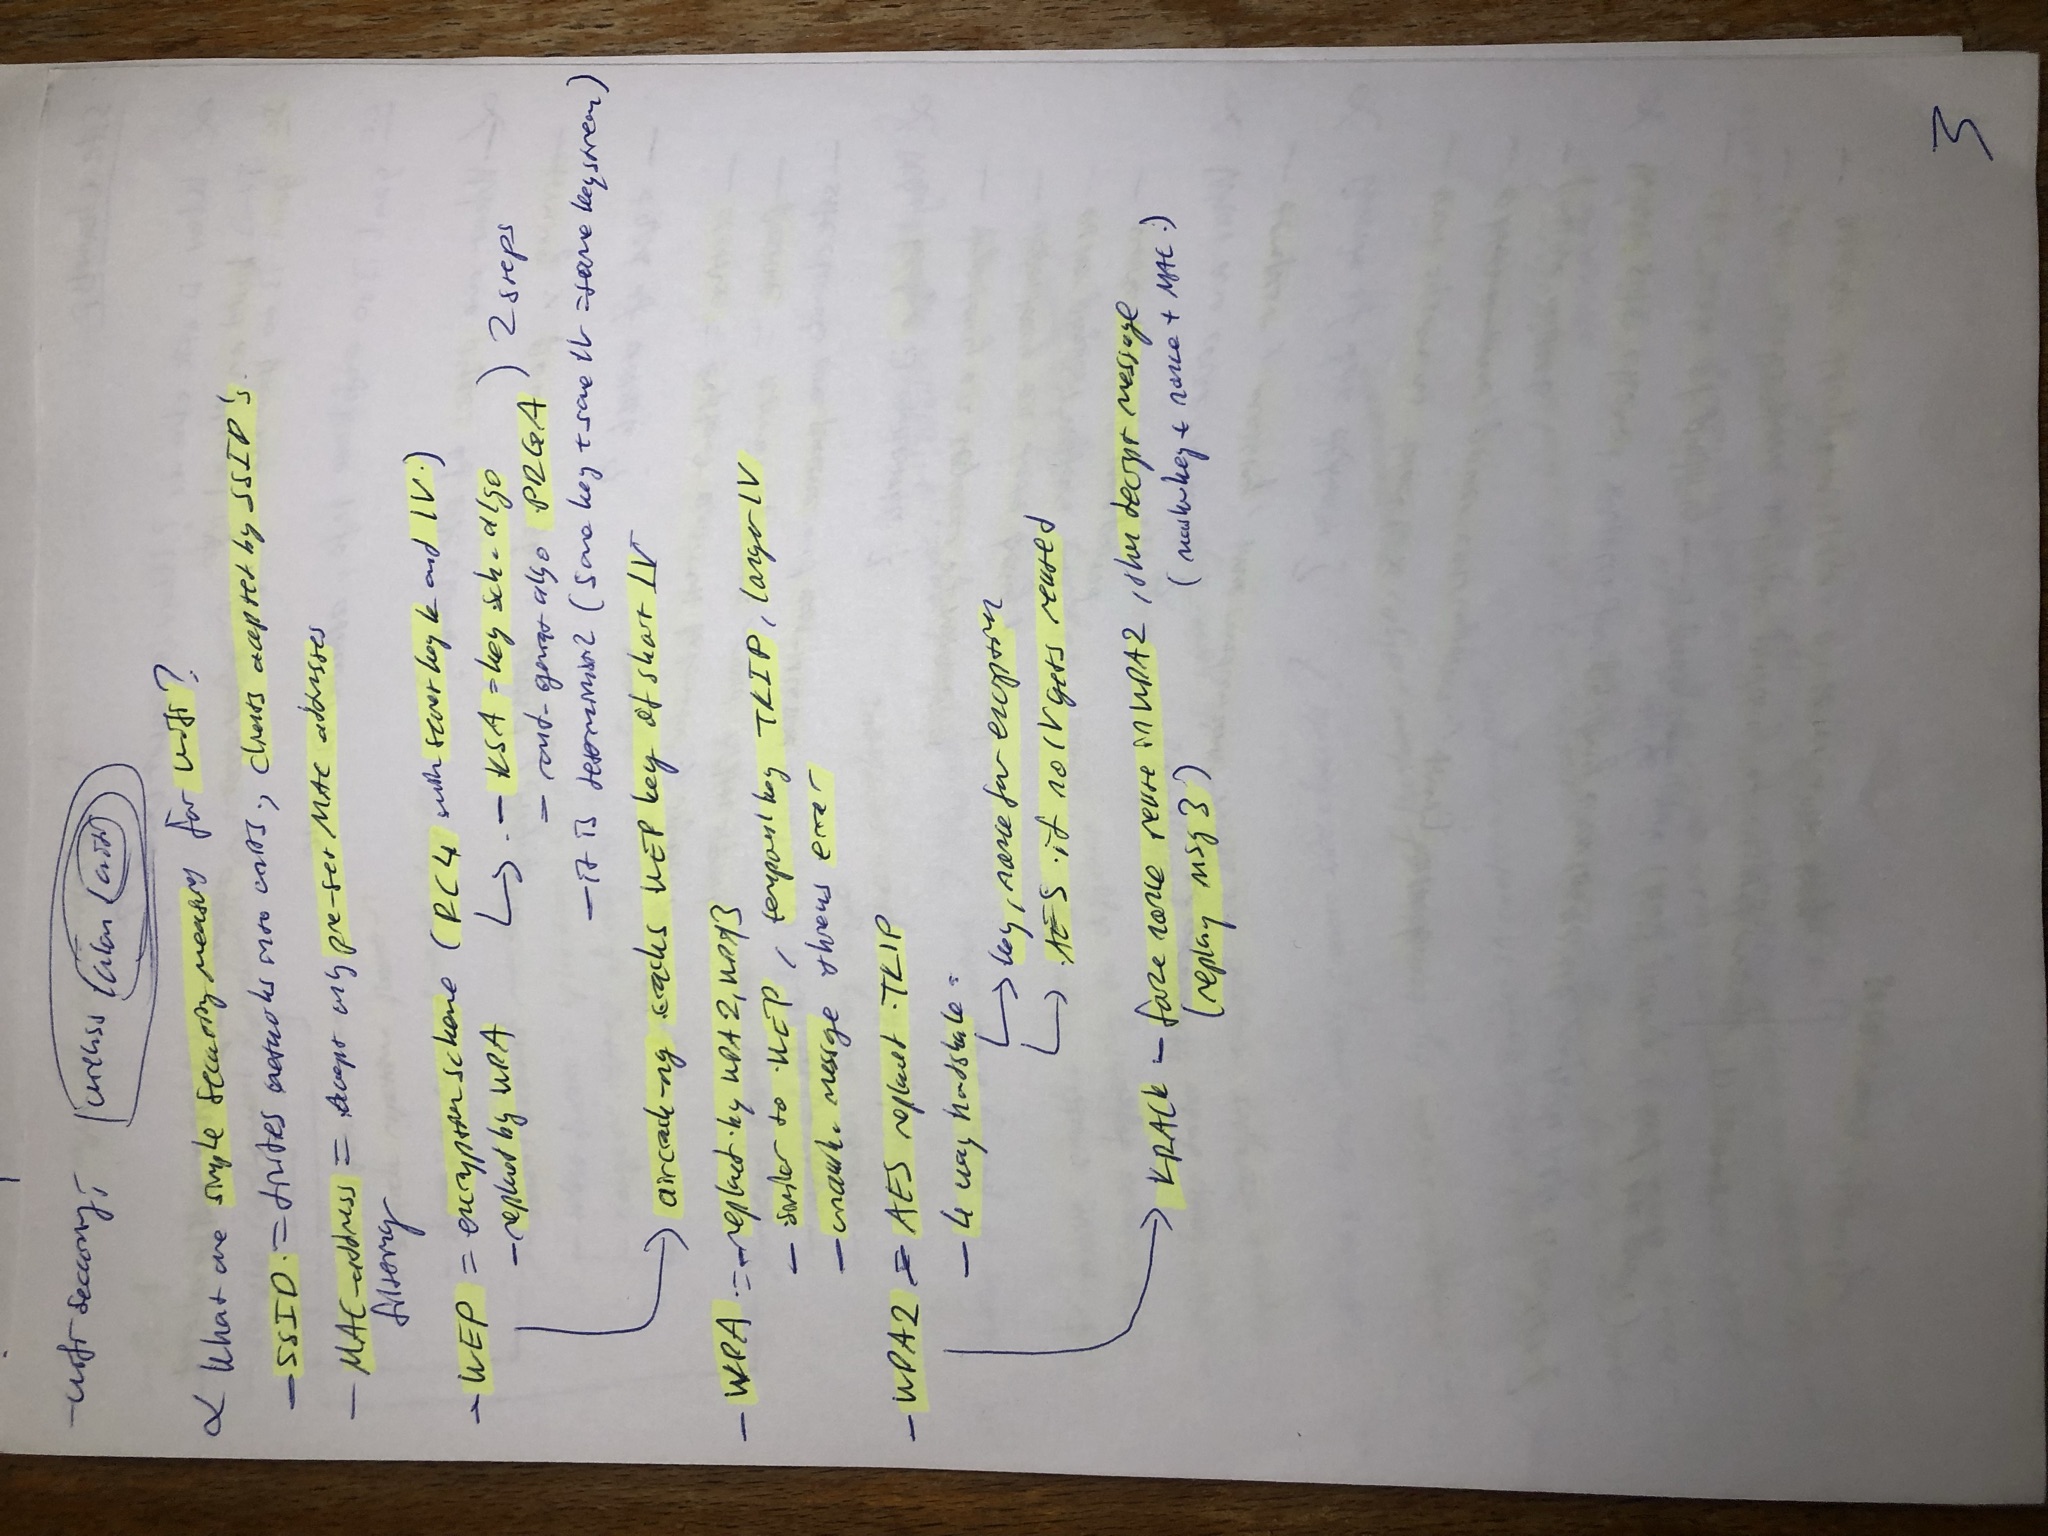 - wifi security wireless (wlan (wifi))
α What are simple security measures for wifi?
- SSID := divides networks into units, clients accepted by SSID's.
- MAC-address = accept only pre-set MAC addresses
filtering
- WEP = encryption scheme (RC4 with secret key k and IV.)
- replaced by WPA
- KSA = key sch. algo ) 2 steps
- algo PRGA
- it is (same key + same IV = same keystream)
aircrack-ng cracks WEP key of short IV
- WPA := replaced by WPA2, WPA3
- similar to WEP, temporal key TKIP, larger IV
- message throws error
- WPA2 = AES replaced TKIP
- 4 way handshake =
key, nonce for encryption
AES if no IV gets reused
KRACK - force nonce reuse in WPA2, then decrypt message
(replay msg 3) (key + nonce + MAC.)
3